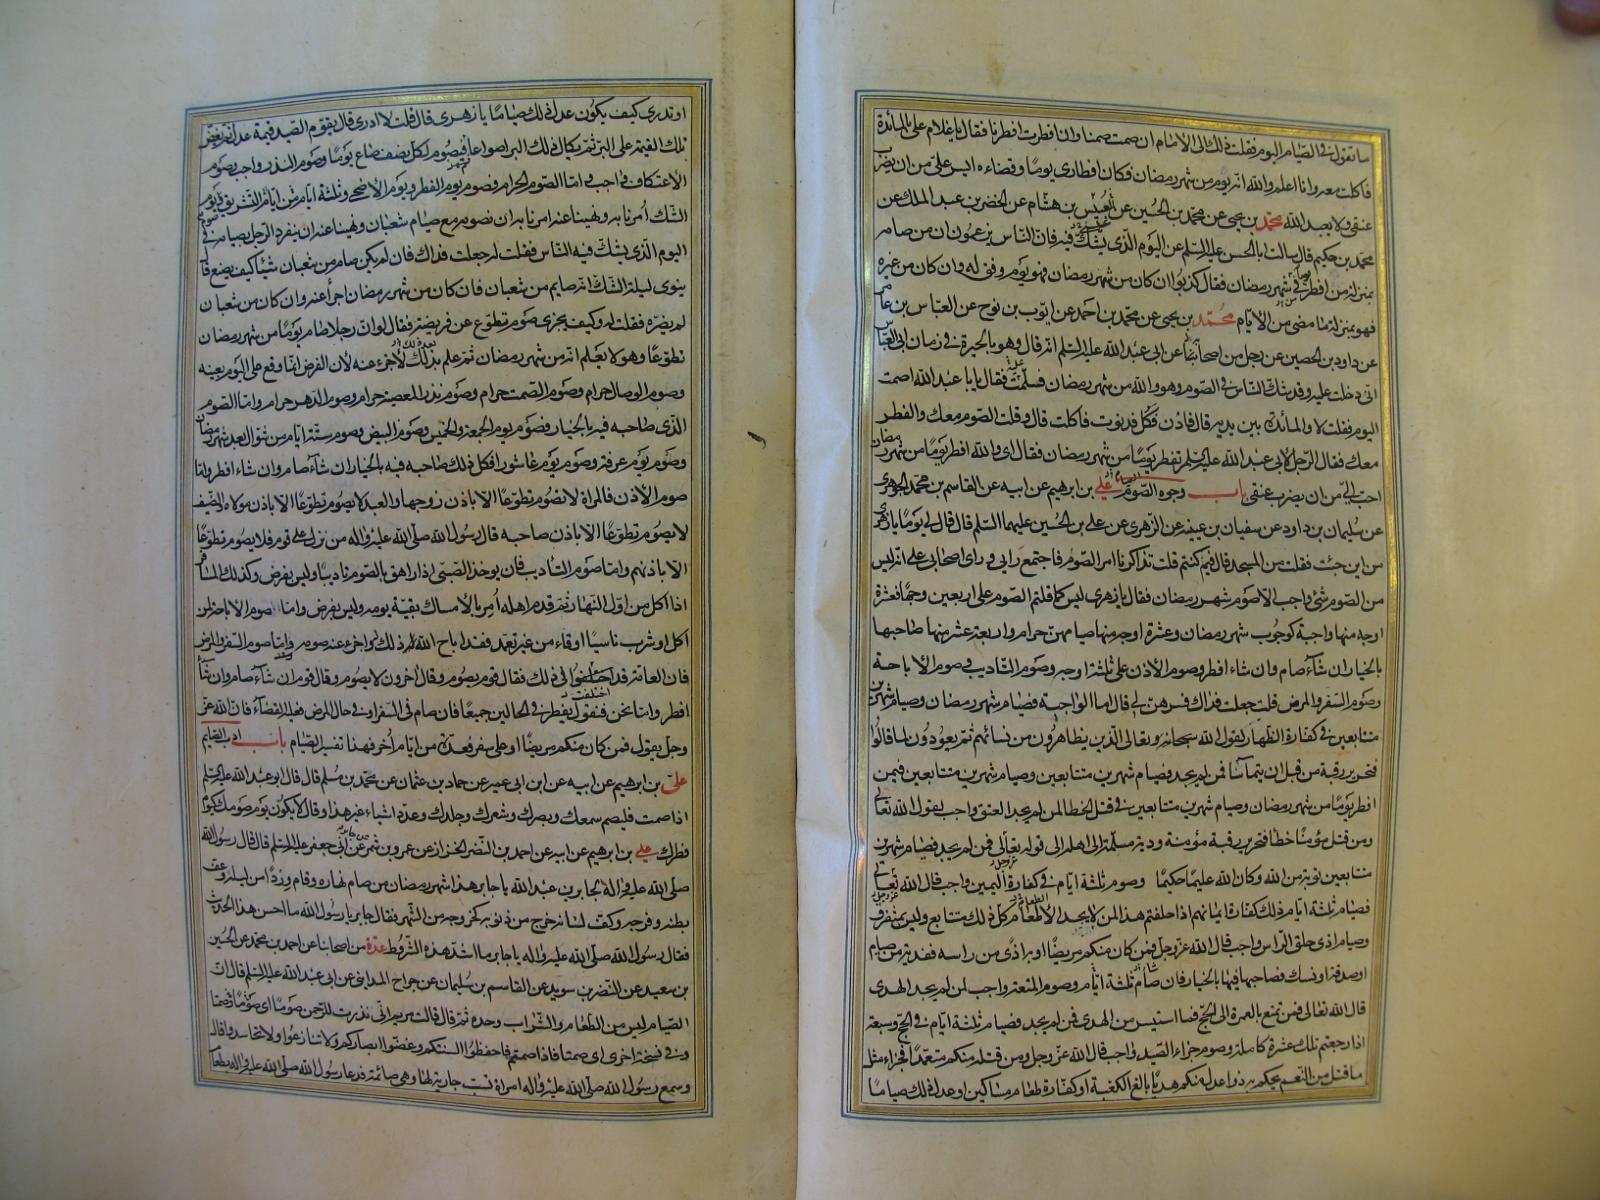 ما تقول في الصيام اليوم فقلت ذلك الى الامام ان صمت صمنا وان افطرت افطرنا فقال يا غلام علىّ بالمائدة
فاكلت معه وانا اعلم والله انه يوم من شهر رمضان فكان افطاري يوما وقضاءه ايسر علىّ من ان يضرب
عنقي ولا يعبد الله محمد بن يحيى عن محمد بن الحسين عن العبيس بن هشام عن الخضر بن عبد الملك عن
محمد بن حكيم قال سالت ابا الحسن عليه السلم عن اليوم الذي يشك فيه فان الناس يزعمون ان من صامه
بمنزلة من افطر في شهر رمضان فقال كذبوا ان كان من شهر رمضان فهو يوم وفق له وان كان من غيره
فهو بمنزلة ما مضى من الايام محمد بن يحيى عن محمد بن احمد عن ايوب بن نوح عن العباس بن عامر
عن داود بن الحصين عن رجل من اصحابنا عن ابي عبد الله عليه السلم انه قال وهو بالحيرة في زمان ابي العباس
اني دخلت عليه وقد شك الناس في الصوم وهو والله من شهر رمضان فسلمت فقال يابا عبد الله اصمت
اليوم فقلت لا والمائدة بين يديه قال فادن فكل فدنوت فاكلت قال وقلت الصوم معك والفطر
معك فقال الرجل لابي عبد الله عليه السلم تفطر يوما من شهر رمضان فقال اي والله افطر يوما من شهر رمضان
احب الىّ من ان يضرب عنقي باب وجوه الصوم علي بن ابرهيم عن ابيه عن القاسم بن محمد الجوهري
عن سليمان بن داود عن سفيان بن عيينه عن الزهري عن علي بن الحسين عليهما السلم قال قال لي يوما يا زهري
من اين جئت فقلت من المسجد قال فيم كنتم قلت تذاكرنا امر الصوم فاجتمع رايي وراى اصحابي على انه ليس
من الصوم شئ واجب الا صوم شهر رمضان فقال يا زهري ليس كما قلتم الصوم على اربعين وجها فعشرة
اوجه منها واجبة كوجوب شهر رمضان وعشرة اوجه منها صيامهن حرام واربعة عشر منها صاحبها
بالخيار ان شاء صام وان شاء افطر وصوم الاذن على ثلثة اوجه وصوم التاديب وصوم الاباحة
وصوم السفر والمرض قلت جعلت فداك فسرهن لي قال اما الواجبة فصيام شهر رمضان وصيام شهرين
متتابعين في كفارة الظهار لقول الله سبحانه وتعالى الذين يظاهرون من نسائهم ثم يعودون لما قالوا
فتحرير رقبة من قبل ان يتماسا فمن لم يجد فصيام شهرين متتابعين وصيام شهرين متتابعين فيمن
افطر يوما من شهر رمضان وصيام شهرين متتابعين في قتل الخطا لمن لم يجد العتق واجب لقول الله تعالى
ومن قتل مؤمنا خطا فتحرير رقبة مؤمنة ودية مسلمة الى اهله الى قوله تعالى فمن لم يجد فصيام شهرين
متتابعين توبة من الله وكان الله عليما حكيما وصوم ثلثة ايام في كفارة اليمين واجب قال الله تعالى
فصيام ثلثة ايام ذلك كفارة ايمانكم اذا حلفتم هذا لمن لا يجد الاطعام كل ذلك متتابع وليس بمتفرق
وصيام اذى حلق الراس واجب قال الله عز وجل فمن كان منكم مريضا او به اذى من راسه ففدية من صيام
او صدقة او نسك فصاحبها فيها بالخيار فان صام ثلثة ايام وصوم المتعة واجب لمن لم يجد الهدى
قال الله تعالى فمن تمتع بالعمرة الى الحج فما استيسر من الهدى فمن لم يجد فصيام ثلثة ايام في الحج وسبعة
اذا رجعتم تلك عشرة كاملة وصوم جزاء الصيد واجب قال الله عز وجل ومن قتله منكم متعمدا فجزاء مثل
ما قتل من النعم يحكم به ذوا عدل منكم هديا بالغ الكعبة او كفارة طعام مساكين او عدل ذلك صياما
او تدري كيف يكون عدل ذلك صياما يا زهري قال قلت لا ادري قال يقوم الصيد قيمة عدل ثم تفض
تلك القيمة على البر ثم يكال ذلك البر اصواعا فيصوم لكل نصف صاع يوما وصوم النذر واجب وصوم
الاعتكاف واجب واما الصوم الحرام فصوم يوم الفطر ويوم الاضحى وثلثة ايام من ايام التشريق وصوم يوم
الشك امرنا به ونهينا عنه امرنا به ان نصومه مع صيام شعبان ونهينا عنه ان ينفرد الرجل بصيامه في
اليوم الذي يشك فيه الناس فقلت له جعلت فداك فان لم يكن صام من شعبان شيئا كيف يصنع قال
ينوي ليلة الشك انه صايم من شعبان فان كان من شهر رمضان اجزأ عنه وان كان من شعبان
لم يضره فقلت له وكيف يجزي صوم تطوع عن فريضة فقال لو ان رجلا صام يوما من شهر رمضان
تطوعا وهو لا يعلم انه من شهر رمضان ثم علم بذلك لاجزء عنه لان الفرض انما وقع على اليوم بعينه
وصوم الوصال حرام وصوم الصمت حرام وصوم نذر المعصية حرام وصوم الدهر حرام واما الصوم
الذي صاحبه فيه بالخيار فصوم يوم الجمعة والخميس وصوم البيض وصوم ستة ايام من شوال بعد شهر رمضان
وصوم يوم عرفة وصوم يوم عاشورا فكل ذلك صاحبه فيه بالخيار ان شاء صام وان شاء افطر واما
صوم الاذن فالمراة لا تصوم تطوعا الا باذن زوجها والعبد لا يصوم تطوعا الا باذن مولاه والضيف
لا يصوم تطوعا الا باذن صاحبه قال رسول الله صلى الله عليه واله من نزل على قوم فلا يصوم تطوعا
الا باذنهم واما صوم التاديب فان يوخذ الصبي اذا راهق بالصوم تاديبا وليس بفرض وكذلك المسافر
اذا اكل من اول النهار ثم قدم اهله امر بالامساك بقية يومه وليس بفرض واما صوم الاباحة لمن
اكل او شرب ناسيا او قاء من غير تعمد فقد اباح الله له ذلك واجزء عنه صومه واما صوم السفر والمرض
فان العامة قد اختلفوا في ذلك فقال قوم يصوم وقال اخرون لا يصوم وقال قوم ان شاء صام وان شاء
افطر واما نحن فنقول يفطر في الحالين جميعا فان صام في السفر او في حال المرض فعليه القضاء فان الله عز
وجل يقول فمن كان منكم مريضا او على سفر فعدة من ايام اخر فهذا تفسير الصيام باب ادب الصايم
علي بن ابرهيم عن ابيه عن ابن ابي عمير عن حماد بن عثمان عن محمد بن مسلم قال قال ابو عبد الله عليه السلم
اذا صمت فليصم سمعك وبصرك وشعرك وجلدك وعدد اشياء غير هذا وقال لا يكون يوم صومك كيوم
فطرك علي بن ابرهيم عن ابيه عن احمد بن النضر الخزاز عن عمرو بن شمر عن جابر عن ابي جعفر عليه السلم قال قال رسول الله
صلى الله عليه واله لجابر بن عبد الله يا جابر هذا شهر رمضان من صام نهاره وقام وردا من ليله وعف
بطنه وفرجه وكف لسانه خرج من ذنوبه كخروجه من الشهر فقال جابر يا رسول الله ما احسن هذا الحديث
فقال رسول الله صلى الله عليه واله يا جابر ما اشد هذه الشروط عدة من اصحابنا عن احمد بن محمد عن الحسين
بن سعيد عن النضر بن سويد عن القاسم بن سليمان عن جراح المدايني عن ابي عبد الله عليه السلم قال ان
الصيام ليس من الطعام والشراب وحده ثم قال قالت مريم اني نذرت للرحمن صوما اي صوما صمتا
وفي نسخة اخرى اي صمتا فاذا صمتم فاحفظوا السنتكم وغضوا ابصاركم ولا تنازعوا ولا تحاسدوا قال
وسمع رسول الله صلى الله عليه واله امراة تسب جارية لها وهي صائمة فدعا رسول الله صلى الله عليه واله بطعام